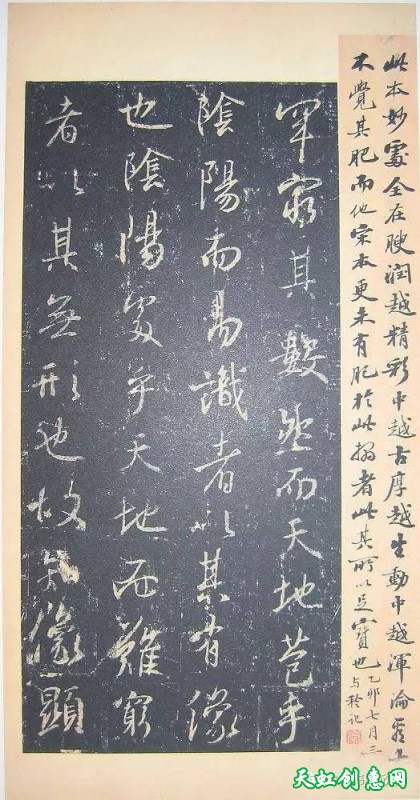 此本妙處全在腴潤越精彩中越古厚越生動中越渾淪
不覺其肥而他宋本更未有肥於此搨者此其所以足寶也
乙卯七月三
記
罕窮其數然而天地苞乎
陰陽而易識者以其有像
也陰陽處乎天地而難窮
者以其無形也故知像顯
天虹创意网